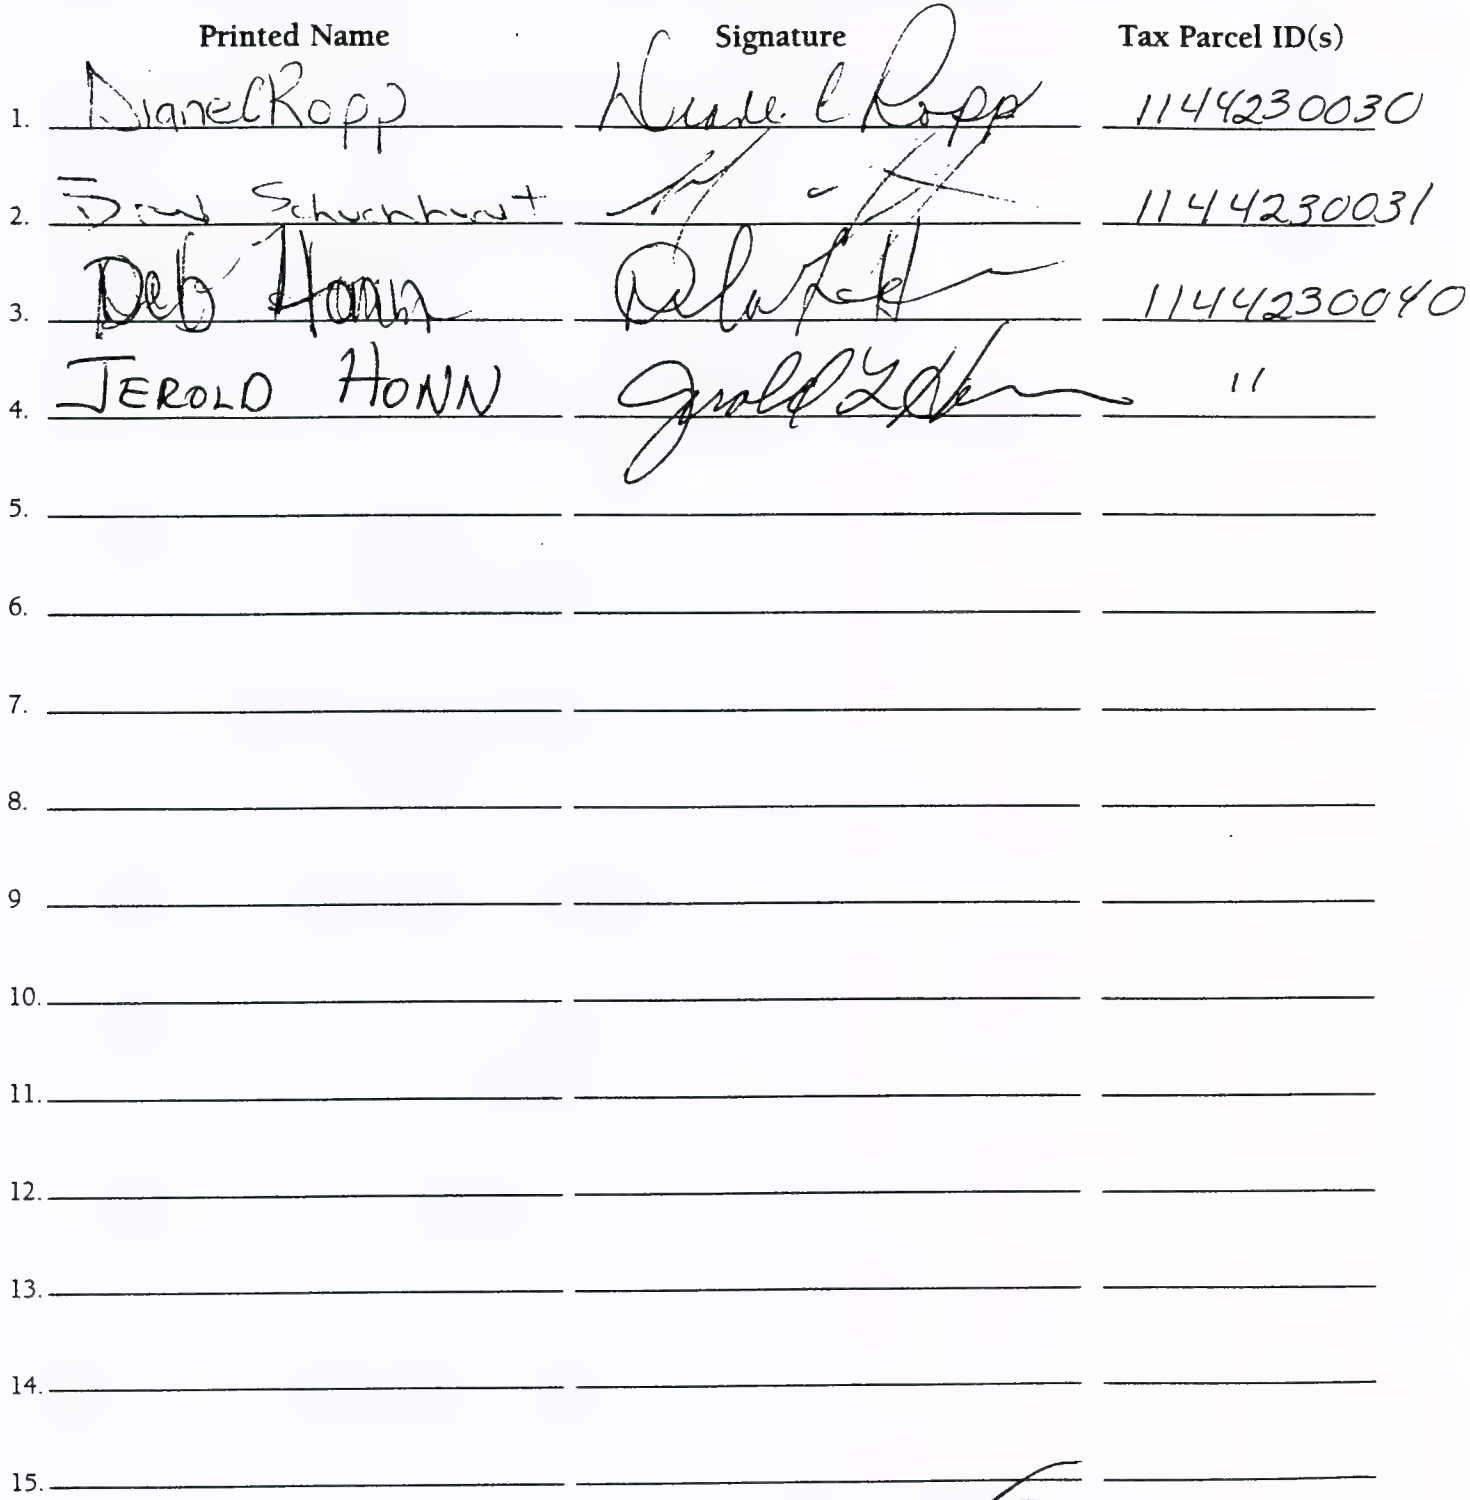 Printed Name Signature Tax Parcel ID(s)
1. Diane C Ropp Diane C Ropp 1144230030
2. 1144230031
3. Deb Honn 1144230040
4. JEROLD HONN Jerold L Honn "
5.
6.
7.
8.
9
10.
11.
12.
13.
14.
15.